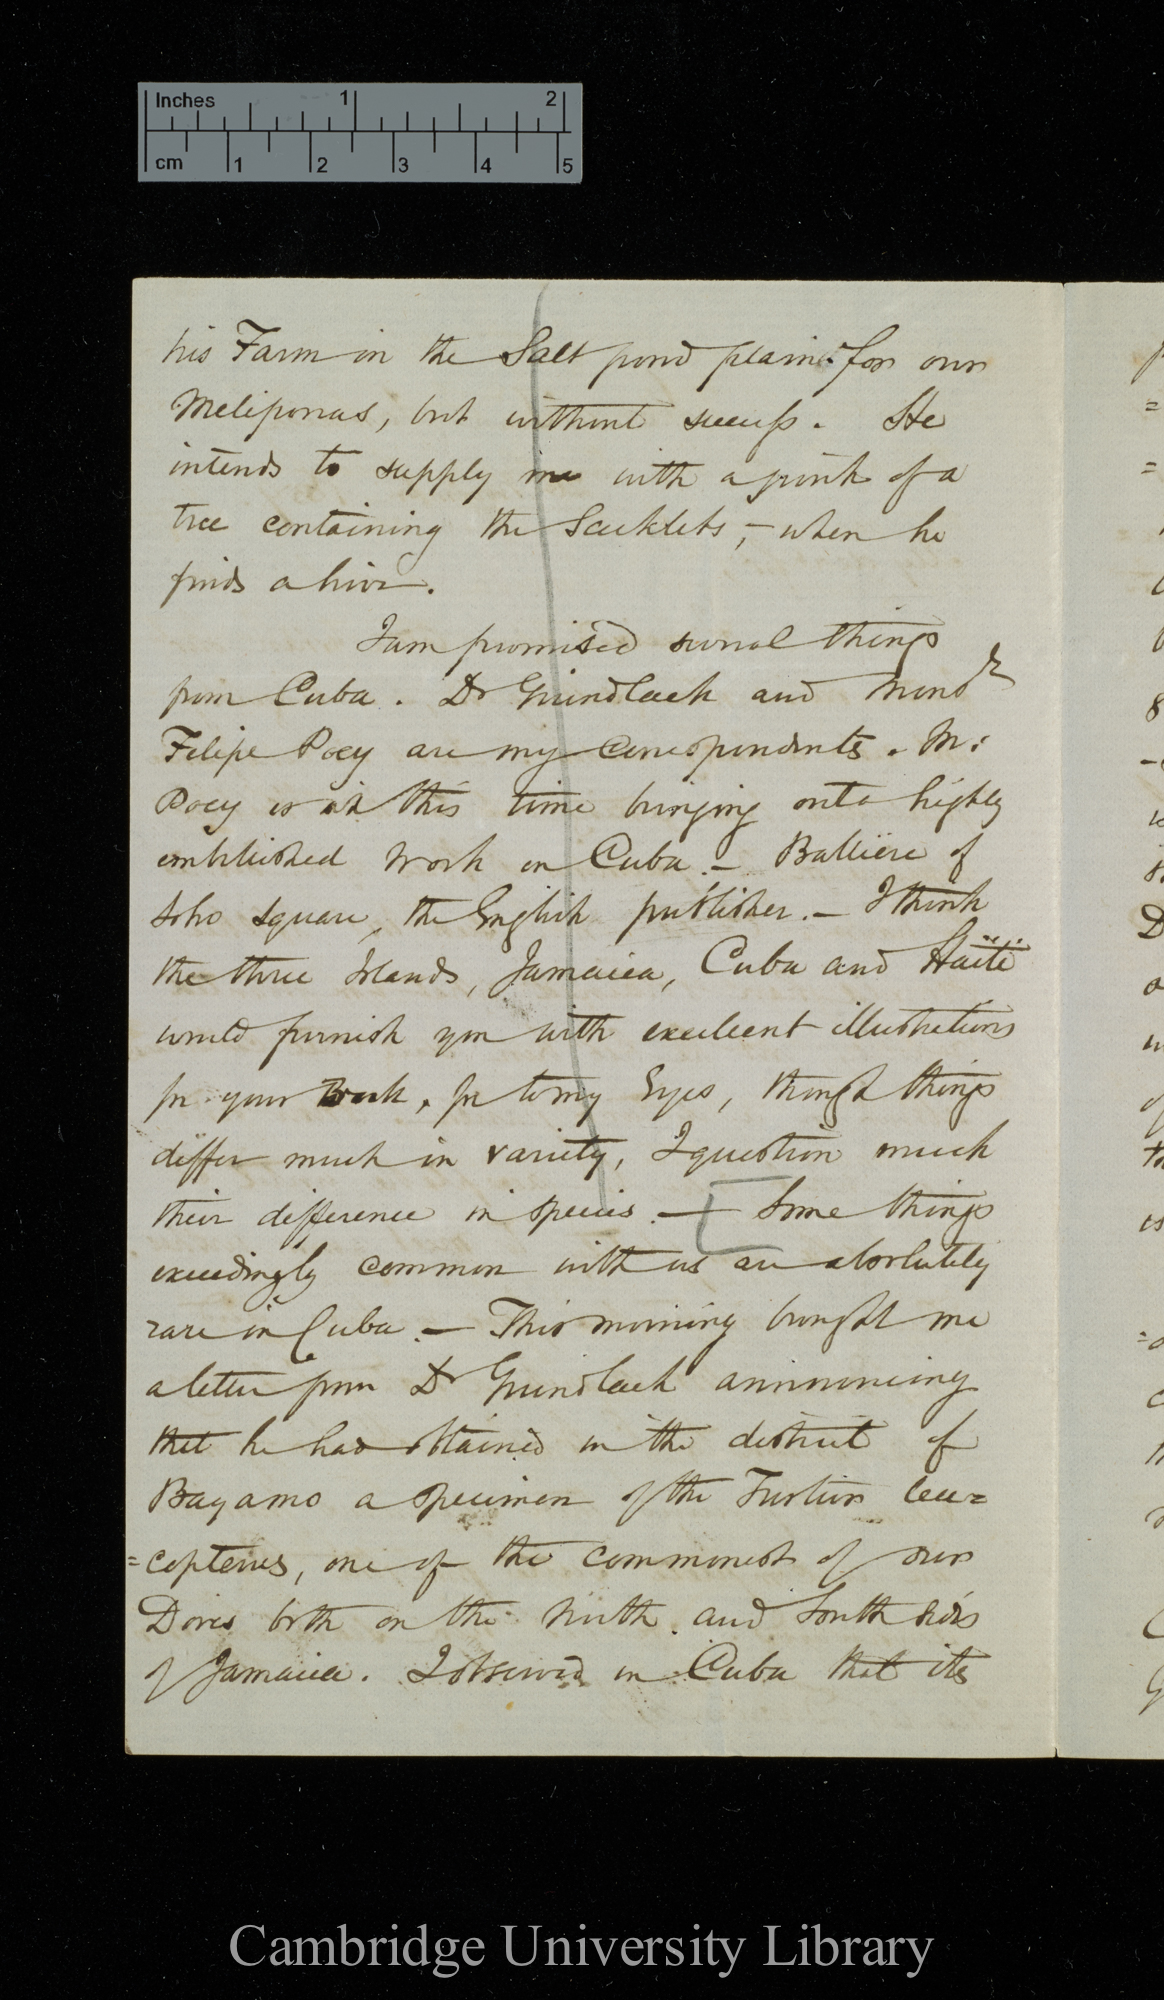 Inches 1 2
cm 1 2 3 4 5
his Farm in the Salt pond plains for our
Meliponas, but without success. He
intends to supply me with a joint of a
tree containing the Sacklets, – when he
finds a hive.
I am promised several things
from Cuba. Dr Gundlach and
Felipe Poey are my correspondents. Mr
Poey is at this time bringing out a highly
embellished work on Cuba. – Balliere of
Soho square, the English publisher. – I think
the three Islands, Jamaica, Cuba and Haïti
would furnish you with excellent illustrations
for your Book, for to my Eyes, though things
differ much in variety, I question much
their difference in species. — Some things
exceedingly common with us are absolutely
rare in Cuba. — This morning brought me
a letter from Dr Gundlach announcing
that he had obtained in the district of
Bayamo a specimen of the Turtur leu=
=copterus, one of the commonest of our
Doves both on the North and South sides
of Jamaica. I observed in Cuba that its
Cambridge University Library